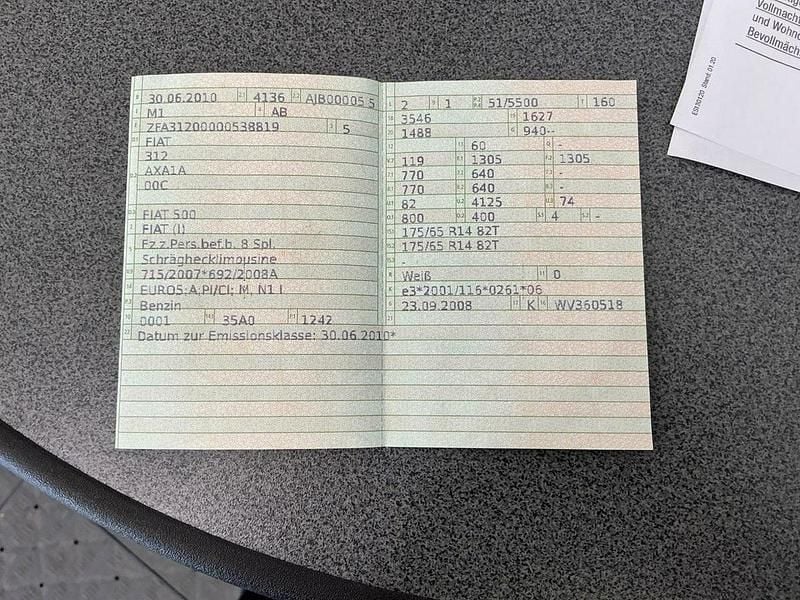 30.06.2010 4136 AJB00005 5
M1 AB
ZFA31200000538819 5
FIAT
312
AXA1A
00C
FIAT 500
FIAT (I)
Fz.z.Pers.bef.b. 8 Spl.
Schräghecklimousine
715/2007*692/2008A
EURO5;A;PI/CI; M, N1 I
Benzin
0001 35A0 1242
Datum zur Emissionsklasse: 30.06.2010*
2 1 51/5500 160
3546 1627
1488 940--
60 -
119 1305 1305
770 640 -
770 640 -
82 4125 74
800 400 4 -
175/65 R14 82T
175/65 R14 82T
-
Weiß 0
e3*2001/116*0261*06
23.09.2008 K WV360518
Vollmach
und Wohn
Bevollmäch
Stand: 01.20